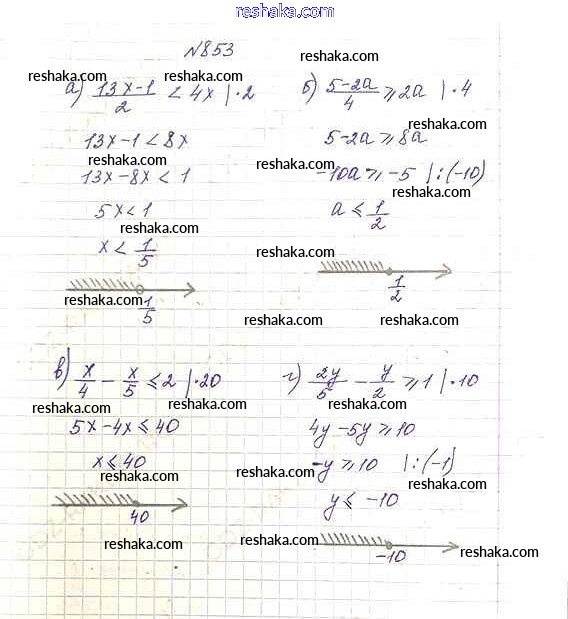 reshaka.com
№853
reshaka.com
reshaka.com reshaka.com
а) (13x-1)/2 < 4x |·2
б) (5-2a)/4 ⩾ 2a |·4
reshaka.com
13x-1<8x
5-2a⩾8a
reshaka.com reshaka.com
13x-8x<1
-10a⩾-5 |:(-10)
reshaka.com
5x<1
a⩽1/2
reshaka.com
x<1/5
reshaka.com
reshaka.com
1/5
1/2
reshaka.com reshaka.com
в) x/4 - x/5 ⩽2 |·20
г) 2y/5 - y/2 ⩾1 |·10
reshaka.com reshaka.com reshaka.com
5x-4x⩽40
4y-5y⩾10
x⩽40
-y⩾10 |:(-1)
reshaka.com reshaka.com
reshaka.com
y⩽-10
40
reshaka.com reshaka.com
-10